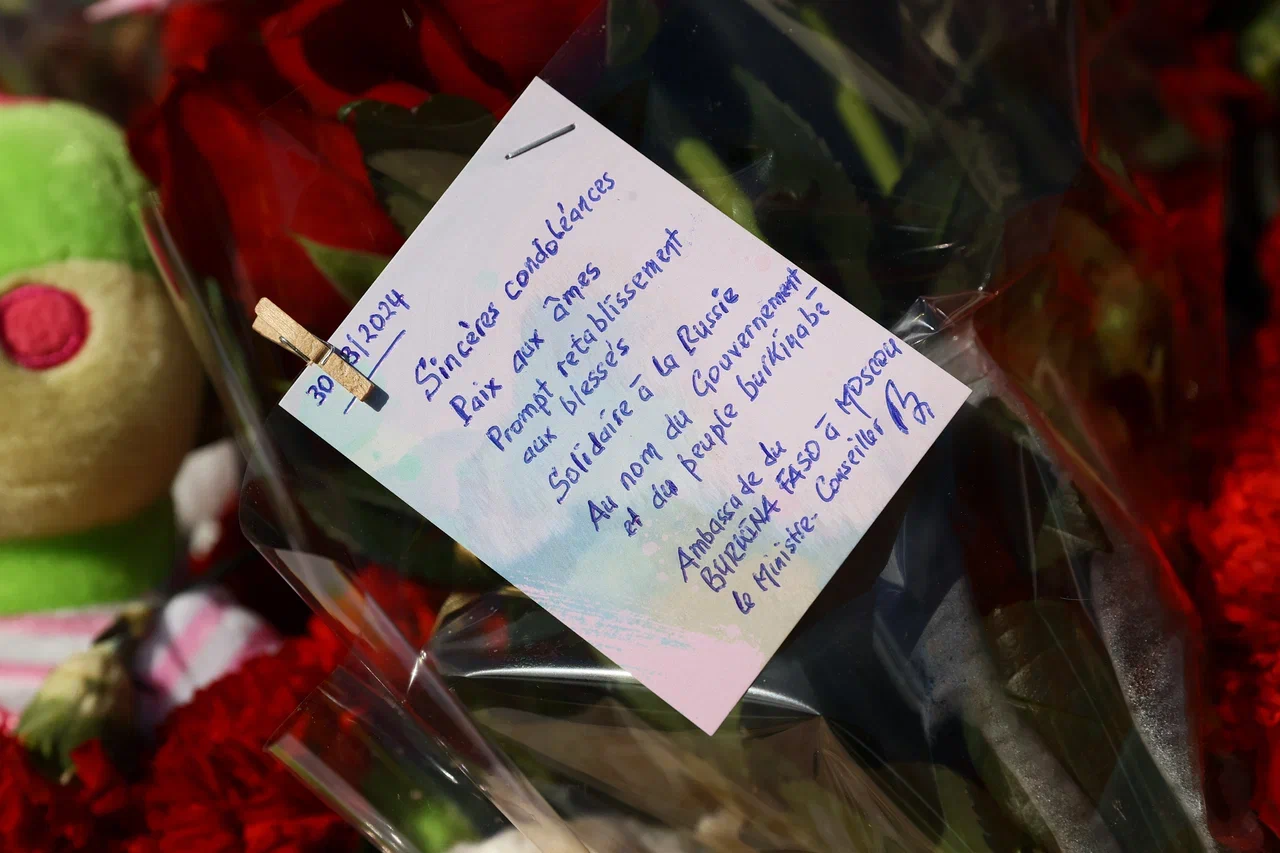 30 3/2024
Sincères condoléances
Paix aux âmes
Prompt retablissement
aux blessés
Solidaire à la Russie
Au nom du Gouvernement
et du peuple burkinabè
Ambassade du
BURKINA FASO à MOSCOU
le Ministre-Conseiller